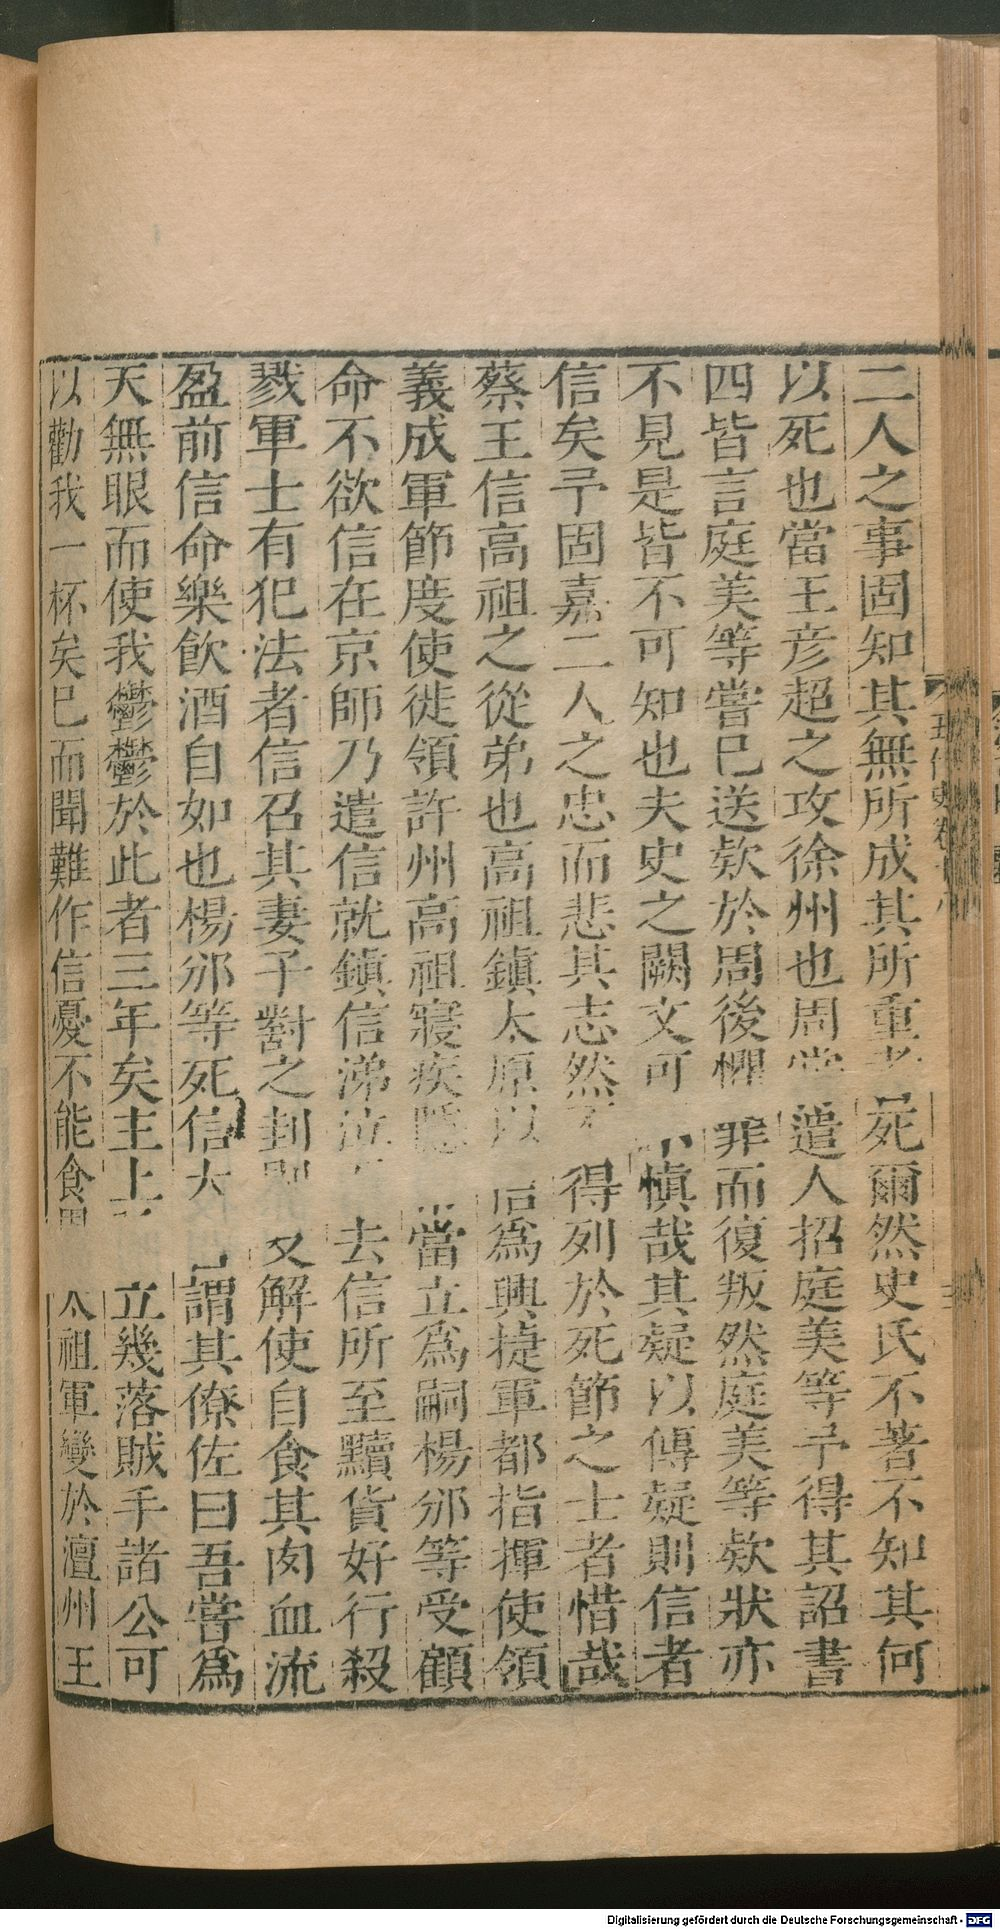 二人之事固知其無所成其所重者死爾然史氏不著不知其何
以死也當王彥超之攻徐州也周嘗遣人招庭美等予得其詔書
四皆言庭美等嘗已送欵於周後懼罪而復叛然庭美等欵狀亦
不見是皆不可知也夫史之闕文可不慎哉其疑以傳疑則信者
信矣予固嘉二人之忠而悲其志然不得列於死節之士者惜哉
蔡王信高祖之從弟也高祖鎮太原以信為興捷軍都指揮使領
義成軍節度使徙領許州高祖寢疾隱帝當立為嗣楊邠等受顧
命不欲信在京師乃遣信就鎮信涕泣而去信所至黷貨好行殺
戮軍士有犯法者信召其妻子對之刲剔支解使自食其肉血流
盈前信命樂飲酒自如也楊邠等死信大喜謂其僚佐曰吾嘗為
天無眼而使我鬱鬱於此者三年矣主上孤立幾落賊手諸公可
以勸我一杯矣已而聞難作信憂不能食周太祖軍變於澶州王
五代史卷十八
Digitalisierung gefördert durch die Deutsche Forschungsgemeinschaft - DFG